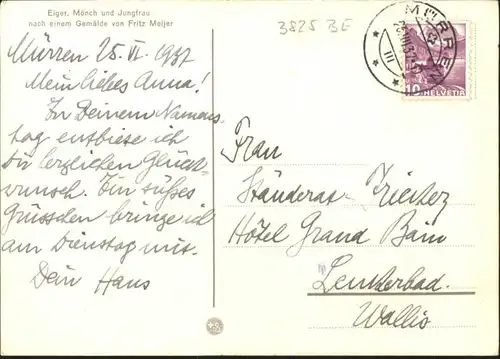 Eiger, Mönch und Jungfrau
nach einem Gemälde von Fritz Meijer
3825 BE
MÜRREN
10
HELVETIA
Mürren 25. VI. 1937
Mein liebes Anna!
Zu Deinem Namens-
tag entbiete ich
Dir herzlichen Glück-
wunsch. Ein süsses
Grüsschen bringe ich
am Dienstag mit.
Dein Hans
Frau
Ständerat
Hôtel Grand Bain
Leukerbad.
Wallis